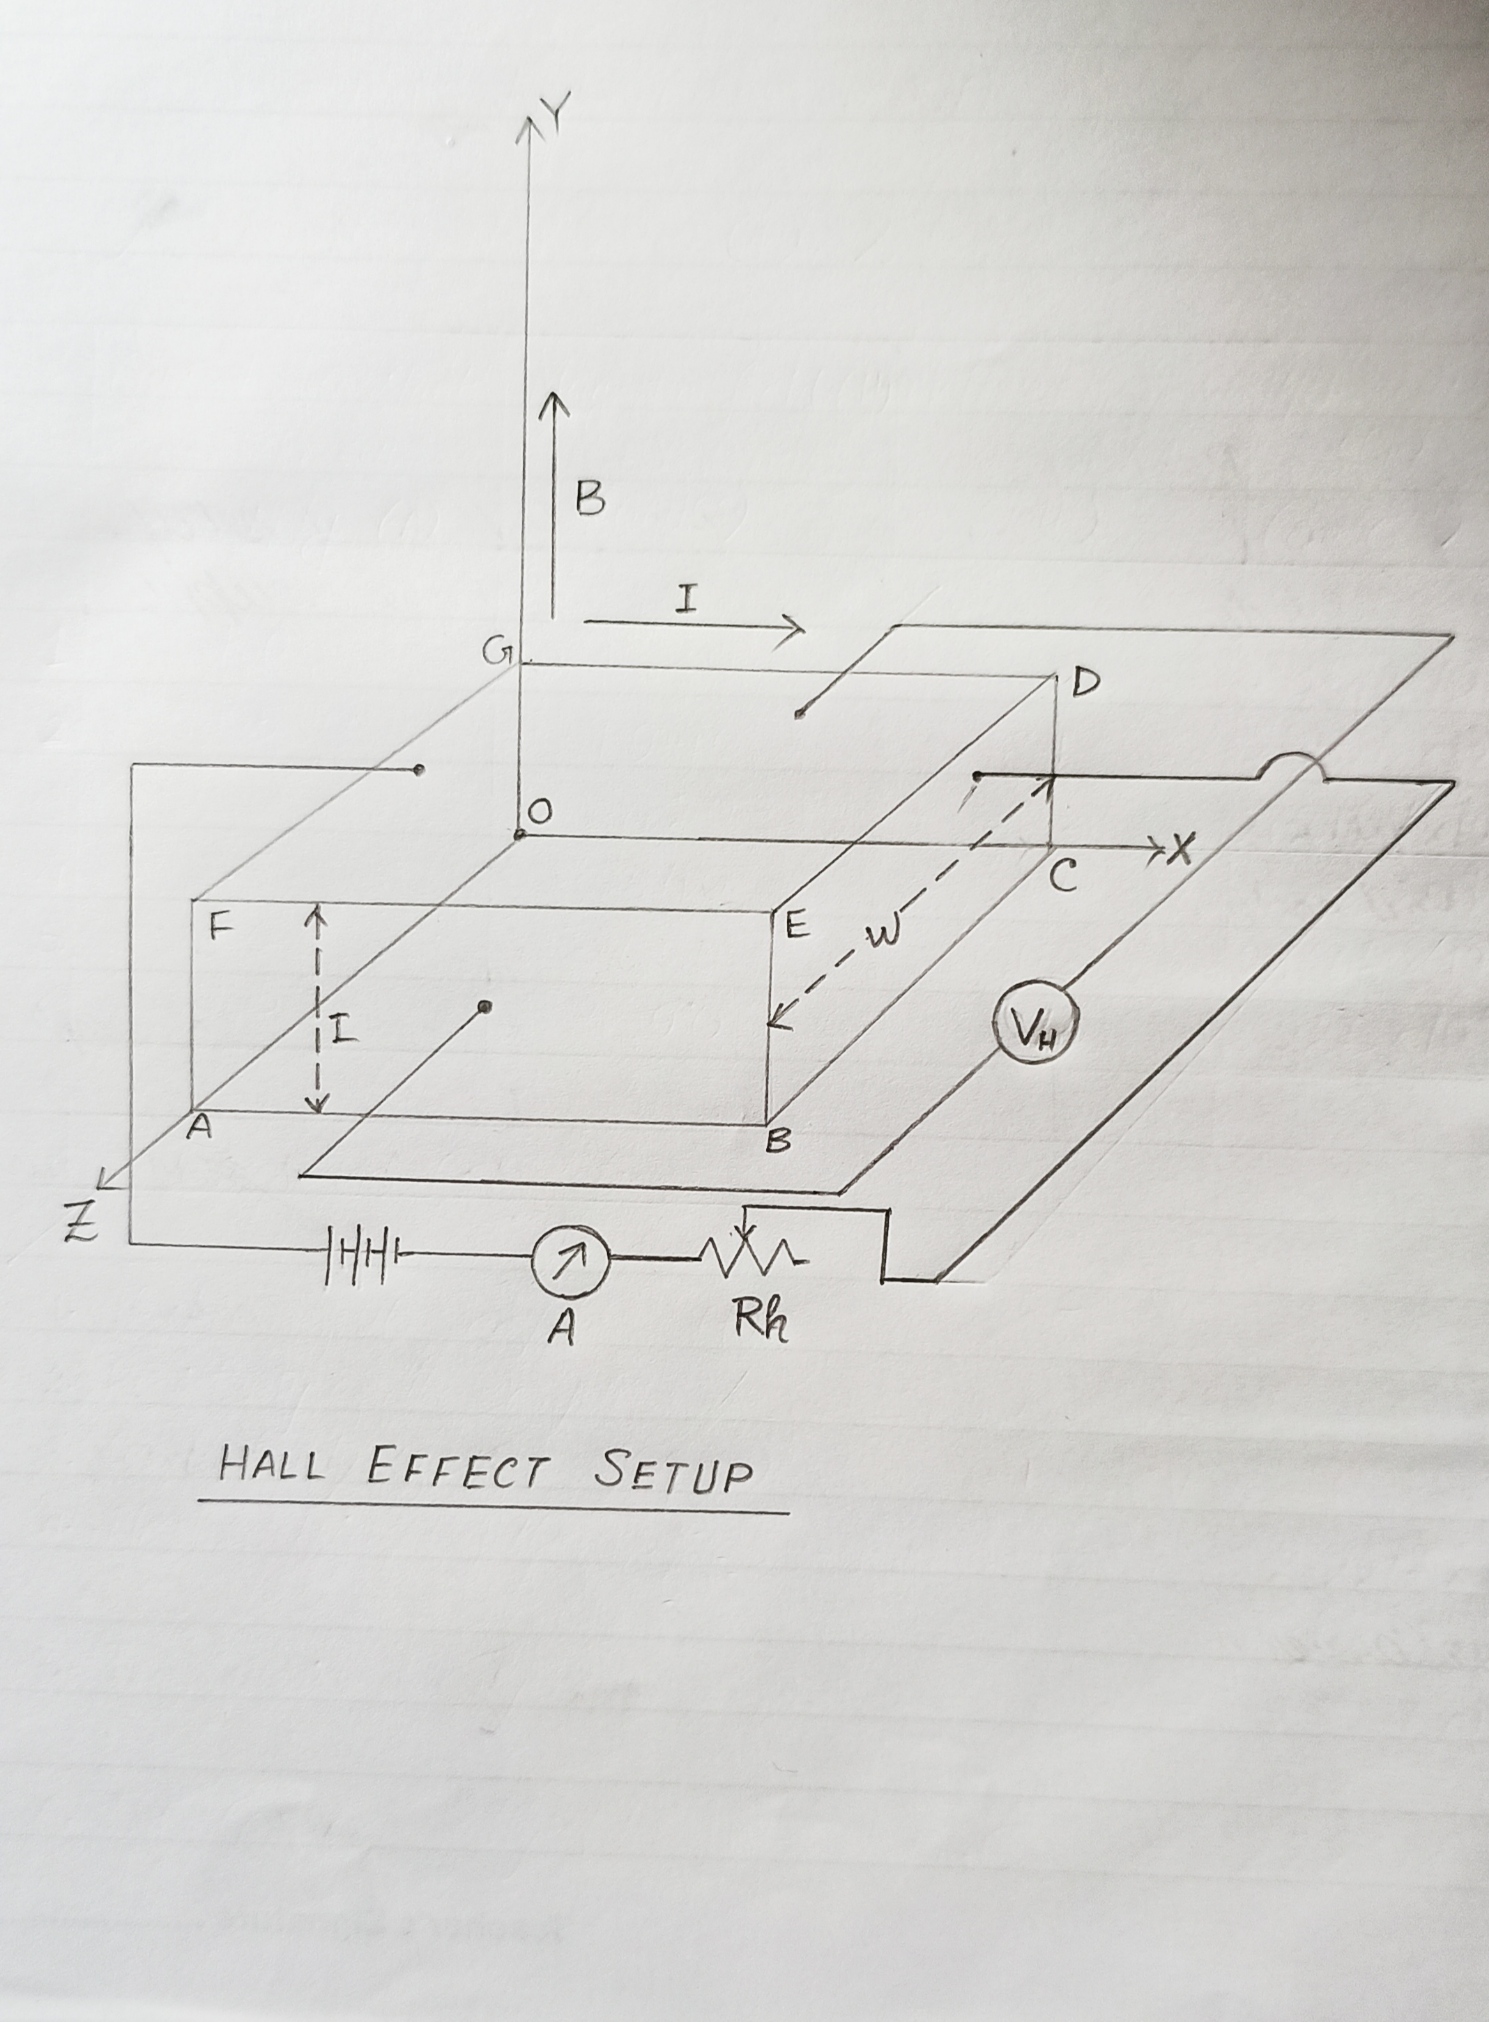 Y
B
I
G
D
O
X
C
F
E
W
I
VH
A
B
Z
A
Rh
HALL EFFECT SETUP